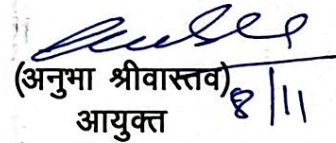 (अनुभा श्रीवास्तव) 8/11
आयुक्त